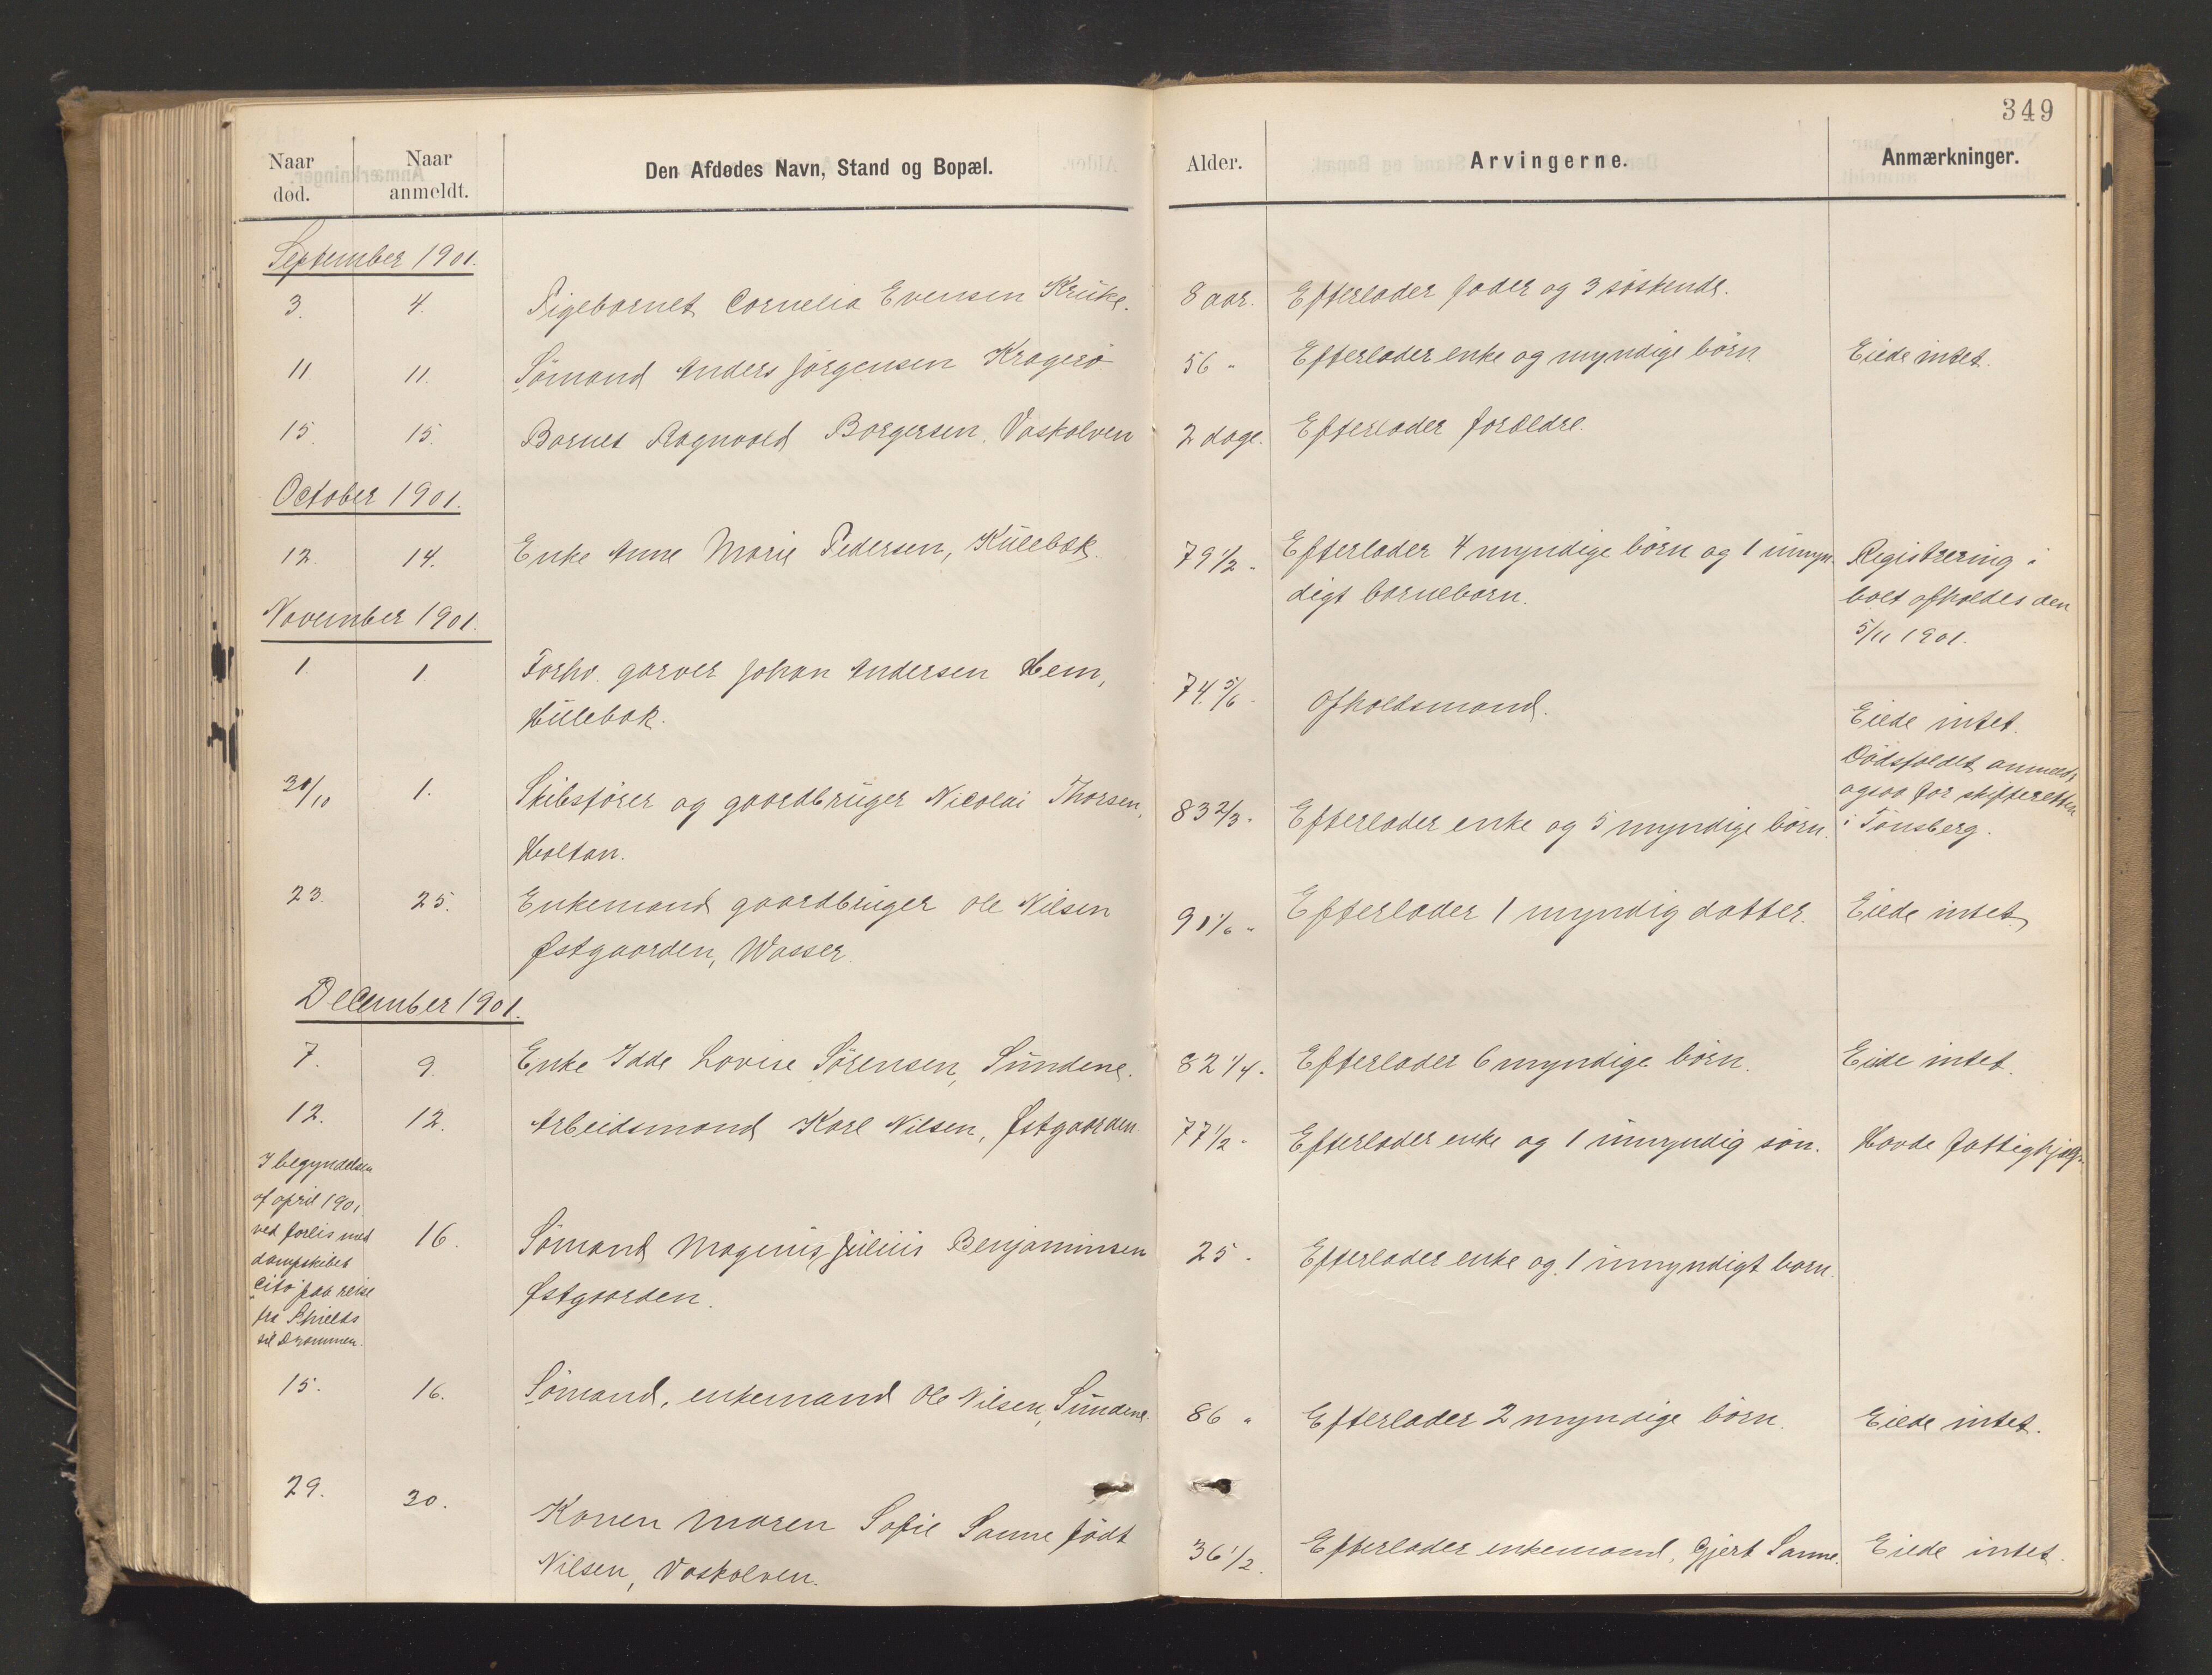 349
Naar død.
Naar anmeldt.
Den Afdødes Navn, Stand og Bopæl.
Alder.
Arvingerne.
Anmærkninger.
September 1901.
3. 4. Pigebarnet Cornelia Evensen Kruke. 8 aar. Efterlader fader og 3 søskende.
11. 11. Sømand Anders Jørgensen Kragerø 56 " Efterlader enke og myndige børn Eiede intet.
15. 15. Barnet Ragnvald Borgersen, Vaskalven 2 dage. Efterlader forældre.
October 1901.
12. 14. Enke Anne Marie Pedersen, Hulebak. 79 1/2 " Efterlader 4 myndige børn og 1 umyn- Registrering i
digt barnebarn. boet afholdes den
5/11 1901.
November 1901.
1. 1. Forhv. garver Johan Andersen Hem, 74 5/6 Afholdsmand. Eiede intet.
Hulebak.
Dødsfaldet anmeldt
ogsaa for skifteretten
i Tønsberg.
30/10 1. Skibsfører og gaardbruger Nicolai Thorsen, 83 2/3 " Efterlader enke og 5 myndige børn.
Holtan.
23. 25. Enkemand gaardbruger Ole Nilsen 91 1/6 " Efterlader 1 myndig datter. Eiede intet.
Østgaarden, Wasser.
December 1901.
7. 9. Enke Idde Lovise Sørensen, Sundene. 82 1/4 " Efterlader 6 myndige børn. Eiede intet.
12. 12. Arbeidsmand Karl Nilsen, Østgaarden 77 1/2 " Efterlader enke og 1 umyndig søn. Havde fattighjælp.
I begyndelsen
af april 1901
ved forlis med
dampskibet
"Cito" paa reise
fra Shields
til Drammen.
16. Sømand Magnus Julius Benjaminsen 25 " Efterlader enke og 1 umyndigt barn.
Østgaarden.
15. 16. Sømand, enkemand Ole Nilsen, Sundene. 86 " Efterlader 2 myndige børn. Eiede intet.
29. 30. Konen Maren Sofie Sanne født 36 1/2 Efterlader enkemand, Gjert Sanne. Eiede intet.
Nilsen, Vaskalven.